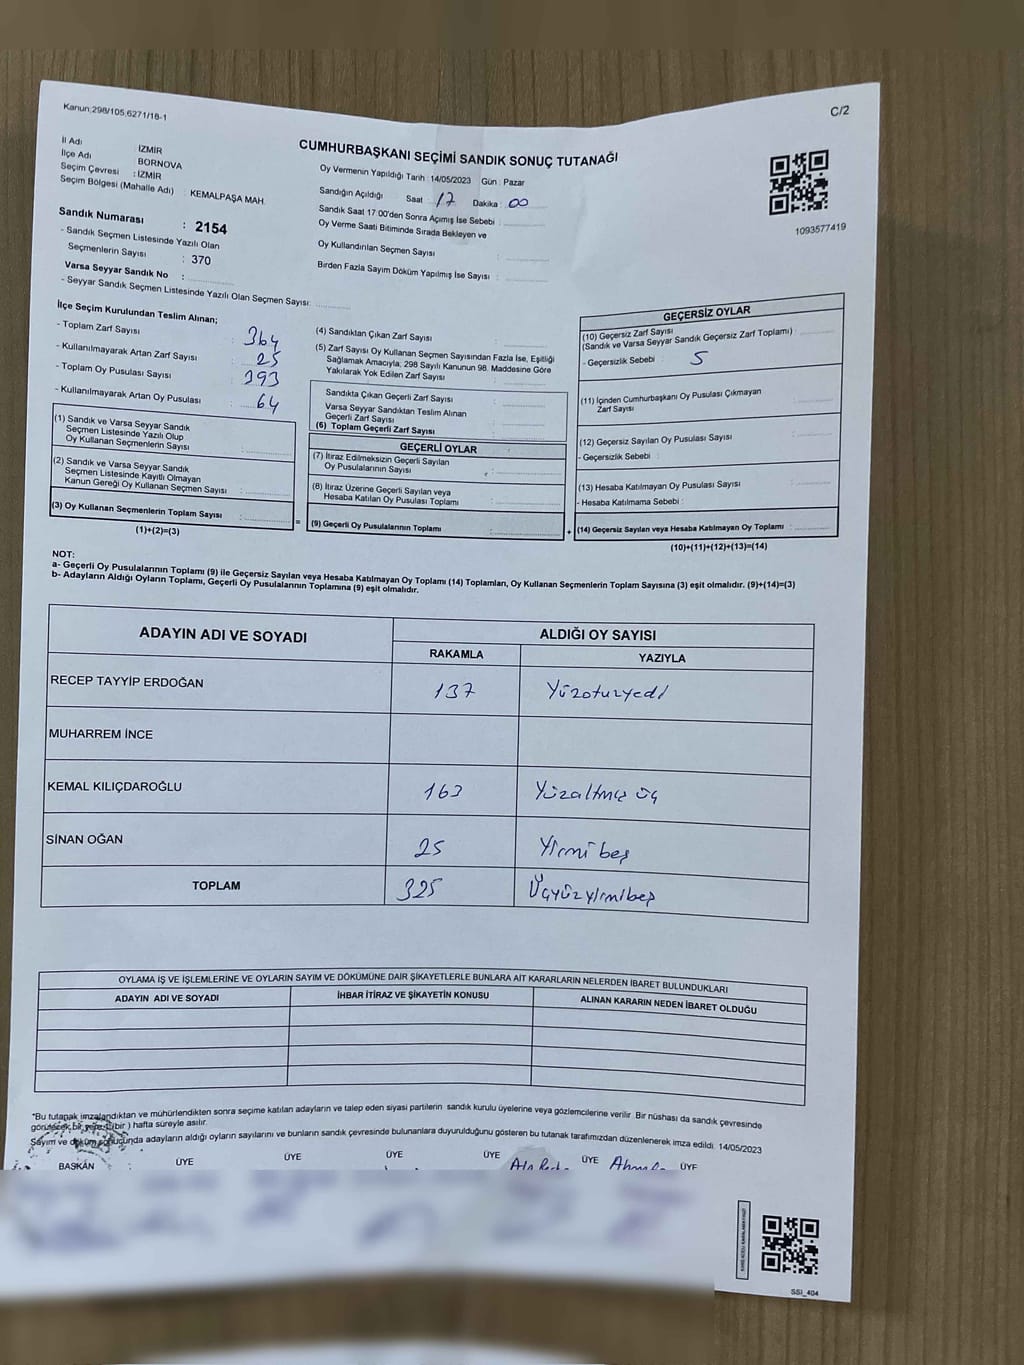 Kanun:298/105,6271/18-1
C/2
İl Adı : İZMİR
İlçe Adı : BORNOVA
Seçim Çevresi : İZMİR
Seçim Bölgesi (Mahalle Adı) : KEMALPAŞA MAH.
Sandık Numarası : 2154
- Sandık Seçmen Listesinde Yazılı Olan
Seçmenlerin Sayısı : 370
Varsa Seyyar Sandık No :
- Seyyar Sandık Seçmen Listesinde Yazılı Olan Seçmen Sayısı:
CUMHURBAŞKANI SEÇİMİ SANDIK SONUÇ TUTANAĞI
Oy Vermenin Yapıldığı Tarih : 14/05/2023 Gün : Pazar
Sandığın Açıldığı Saat 17 Dakika : 00
Sandık Saat 17.00'den Sonra Açımış İse Sebebi :
Oy Verme Saati Bitiminde Sırada Bekleyen ve
Oy Kullandırılan Seçmen Sayısı :
Birden Fazla Sayım Döküm Yapılmış İse Sayısı :
1093577419
İlçe Seçim Kurulundan Teslim Alınan;
- Toplam Zarf Sayısı : 364
- Kullanılmayarak Artan Zarf Sayısı : 25
- Toplam Oy Pusulası Sayısı : 393
- Kullanılmayarak Artan Oy Pusulası : 64
(1) Sandık ve Varsa Seyyar Sandık
Seçmen Listesinde Yazılı Olup
Oy Kullanan Seçmenlerin Sayısı :
(2) Sandık ve Varsa Seyyar Sandık
Seçmen Listesinde Kayıtlı Olmayan
Kanun Gereği Oy Kullanan Seçmen Sayısı :
(3) Oy Kullanan Seçmenlerin Toplam Sayısı :
(1)+(2)=(3)
=
(4) Sandıktan Çıkan Zarf Sayısı :
(5) Zarf Sayısı Oy Kullanan Seçmen Sayısından Fazla İse, Eşitliği
Sağlamak Amacıyla; 298 Sayılı Kanunun 98. Maddesine Göre
Yakılarak Yok Edilen Zarf Sayısı :
Sandıkta Çıkan Geçerli Zarf Sayısı :
Varsa Seyyar Sandıktan Teslim Alınan
Geçerli Zarf Sayısı :
(6) Toplam Geçerli Zarf Sayısı :
GEÇERLİ OYLAR
(7) İtiraz Edilmeksizin Geçerli Sayılan
Oy Pusulalarının Sayısı :
(8) İtiraz Üzerine Geçerli Sayılan veya
Hesaba Katılan Oy Pusulası Toplamı :
(9) Geçerli Oy Pusulalarının Toplamı :
+
GEÇERSİZ OYLAR
(10) Geçersiz Zarf Sayısı
(Sandık ve Varsa Seyyar Sandık Geçersiz Zarf Toplamı) :
- Geçersizlik Sebebi : 5
(11) İçinden Cumhurbaşkanı Oy Pusulası Çıkmayan
Zarf Sayısı :
(12) Geçersiz Sayılan Oy Pusulası Sayısı :
- Geçersizlik Sebebi :
(13) Hesaba Katılmayan Oy Pusulası Sayısı :
- Hesaba Katılmama Sebebi :
(14) Geçersiz Sayılan veya Hesaba Katılmayan Oy Toplamı :
(10)+(11)+(12)+(13)=(14)
NOT:
a- Geçerli Oy Pusulalarının Toplamı (9) ile Geçersiz Sayılan veya Hesaba Katılmayan Oy Toplamı (14) Toplamları, Oy Kullanan Seçmenlerin Toplam Sayısına (3) eşit olmalıdır. (9)+(14)=(3)
b- Adayların Aldığı Oyların Toplamı, Geçerli Oy Pusulalarının Toplamına (9) eşit olmalıdır.
ADAYIN ADI VE SOYADI
ALDIĞI OY SAYISI
RAKAMLA YAZIYLA
RECEP TAYYİP ERDOĞAN 137 Yüzotuzyedi
MUHARREM İNCE
KEMAL KILIÇDAROĞLU 163 Yüzaltmış üç
SİNAN OĞAN 25 Yirmi beş
TOPLAM 325 Üçyüzyirmibeş
OYLAMA İŞ VE İŞLEMLERİNE VE OYLARIN SAYIM VE DÖKÜMÜNE DAİR ŞİKAYETLERLE BUNLARA AİT KARARLARIN NELERDEN İBARET BULUNDUKLARI
ADAYIN ADI VE SOYADI İHBAR İTİRAZ VE ŞİKAYETİN KONUSU ALINAN KARARIN NEDEN İBARET OLDUĞU
*Bu tutanak imzalandıktan ve mühürlendikten sonra seçime katılan adayların ve talep eden siyasi partilerin sandık kurulu üyelerine veya gözlemcilerine verilir. Bir nüshası da sandık çevresinde
görülecek bir yere 1 (bir) hafta süreyle asılır.
Sayım ve döküm sonucunda adayların aldığı oyların sayılarını ve bunların sandık çevresinde bulunanlara duyurulduğunu gösteren bu tutanak tarafımızdan düzenlenerek imza edildi. 14/05/2023
BAŞKAN ÜYE ÜYE ÜYE ÜYE ÜYE ÜYE
SSI_404